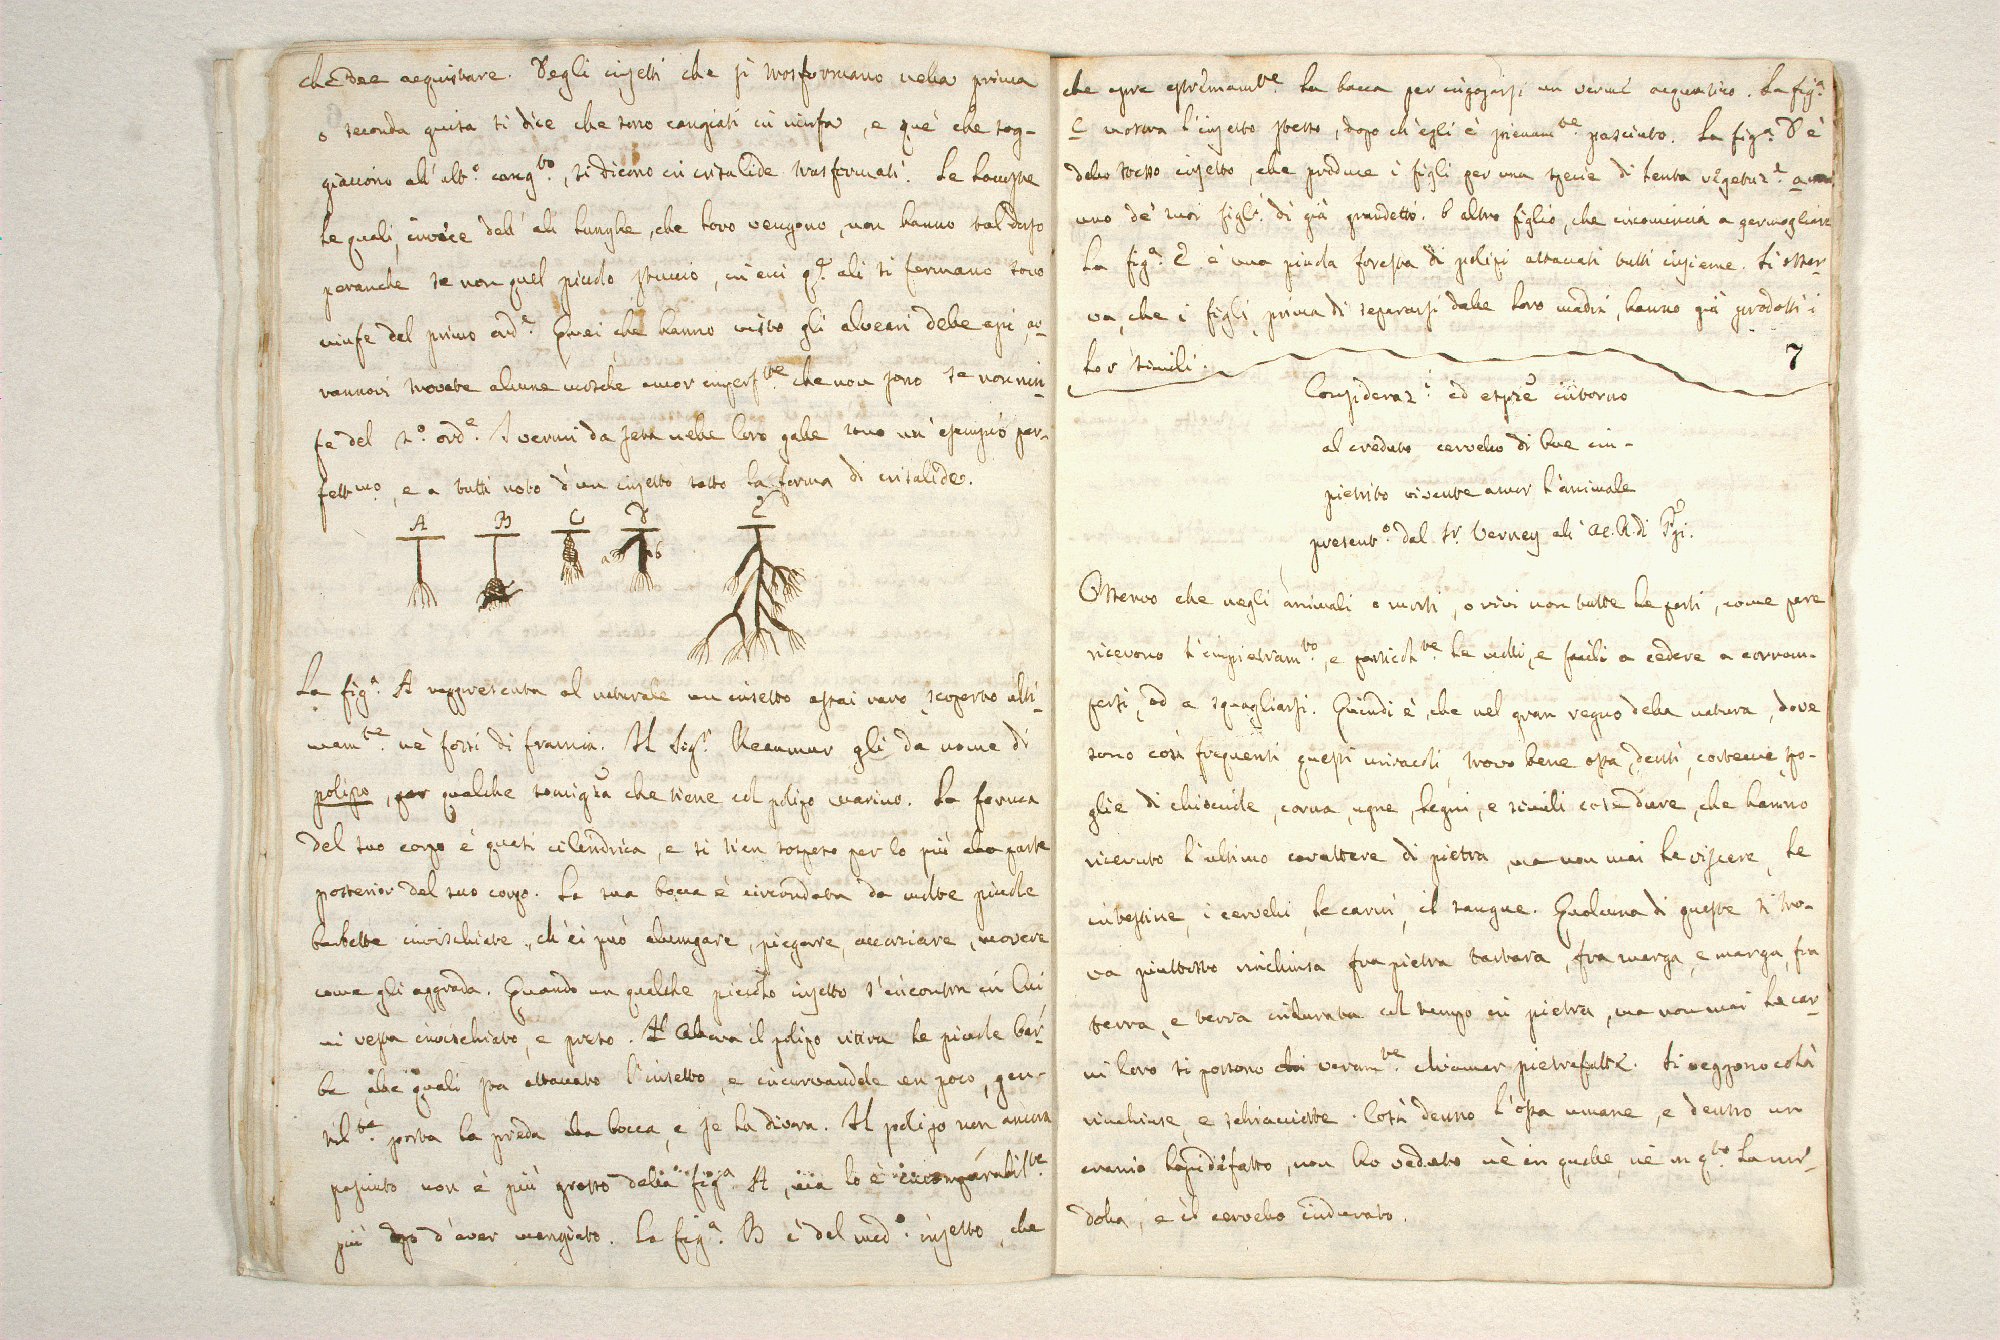 che dee acquistare. Degli insetti che si trasformano nella prima
o seconda guisa si dice che sono cangiati in ninfa, e que' che sog-
giacciono all'alt.º cang.to, si dicono in crisalide trasformati. Le Locuste
le quali, invece dell'ali lunghe, che loro vengono, non hanno sul dorso
peranche se non quel picciolo stuccio, in cui q.e ali si fermano sono
ninfe del primo ord.e Quei che hanno visto gli alveari delle api, av-
rannovi trovate alcune mosche ancor imperf.te che non sono se non nin-
fe del 2.º ord.e I vermi da seta nelle loro galle sono un esempio per-
fett.mo, e a tutti noto d'un insetto sotto la forma di crisalide.
A B C D E
a b
La fig.a A rappresenta al naturale un insetto assai raro, scoperto ulti-
mam.te ne' fossi di francia. Il Sig.r Reaumur gli da nome di
polipo, per qualche somigl.za che tiene col polipo marino. La forma
del suo corpo è quasi cilindrica, e si tien sospeso per lo più alla parte
posterior del suo corpo. La sua bocca è circondata da molte picciole
barbette invischiate, ch'ei può allungare, piegare, accorciare, movere
come gli aggrada. Quando un qualche picciolo insetto s'incontra in lui
vi resta invischiato, e preso. Allora il polipo ritira le picciole bar-
be, alle quali sta attaccato l'insetto, e incurvandole un poco, gen-
til.te porta la preda alla bocca, e se la divora. Il polipo non ancora
pasciuto non è più grosso della fig.a A, ma lo è incomparabil.te
più dopo d'aver mangiato. La fig.a B è del med.º insetto, che
che apre estremam.te la bocca per ingojarsi un verme acquatico. La fig.a
C mostra l'insetto stesso, dopo ch'egli è pienam.te pasciuto. La fig.a D è
dello stesso insetto, che produce i figli per una specie di lenta vegetaz.e a
uno de' suoi figli di già grandetto. b altro figlio, che incomincia a germogliare
La fig.a E è una picciola foresta di polipi attaccati tutti insieme. Si osser-
va, che i figli, prima di separarsi dalle loro madri, hanno già prodotti i
lor simili.
7
Consideraz.i ed espze intorno
al creduto cervello di bue im-
pietrito vivente ancor l'animale
present.º dal Sr. Verney all'Ac. R. di Pgi.
Osservo che negli animali o morti, o vivi non tutte le parti, come pare
ricevono l'impietram.to, e particol.te le molli, e facili a cedere a corrom-
persi, ed a squagliarsi. Quindi è, che nel gran regno della natura, dove
sono così frequenti questi miracoli, trovo bene ossa, denti, cortecce, spo-
glie di chiocciole, corna, ugne, legni, e simili cose dure, che hanno
ricevuto l'ultimo carattere di pietra, ma non mai le viscere, le
intestine, i cervelli, le carni, il sangue. Qualcuna di queste si tro-
va piuttosto rinchiusa fra pietra tartara, fra marga, e marga, fra
terra, e terra indurata col tempo in pietra, ma non mai le car-
ni loro si possono veram.te chiamar pietrefatte. Si veggono colà
rinchiuse, e schiacciate. Così dentro l'ossa umane, e dentro un
cranio lapidefatto, non ho veduto nè in quelle, nè in q.to la mi-
dolla, e il cervello indurato.